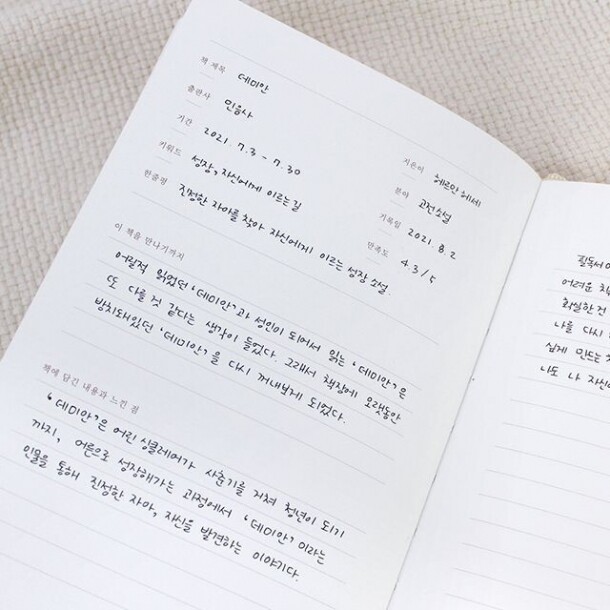 책 제목 데미안
출판사 민음사 지은이 헤르만 헤세
기간 2021. 7.3 - 7.30 분야 고전소설
키워드 성장, 자신에게 이르는 길 기록일 2021 8.2
한줄평 진정한 자아를 찾아 자신에게 이르는 성장 소설 만족도 4.3/5
이 책을 만나기까지
어릴적 읽었던 '데미안'과 성인이 되어서 읽는 '데미안'은
또 다를 것 같다는 생각이 들었다. 그래서 책장에 오랫동안
방치돼있던 '데미안'을 다시 꺼내보게 되었다.
책에 담긴 내용과 느낀 점
'데미안'은 어린 싱클레어가 사춘기를 거쳐 청년이 되기
까지, 어른으로 성장해가는 과정에서 '데미안'이라는
인물을 통해 진정한 자아, 자신을 발견하는 이야기다.
필독서
어려운
확실한건
나를 다시
쉽게 만드는
나도 나 자신